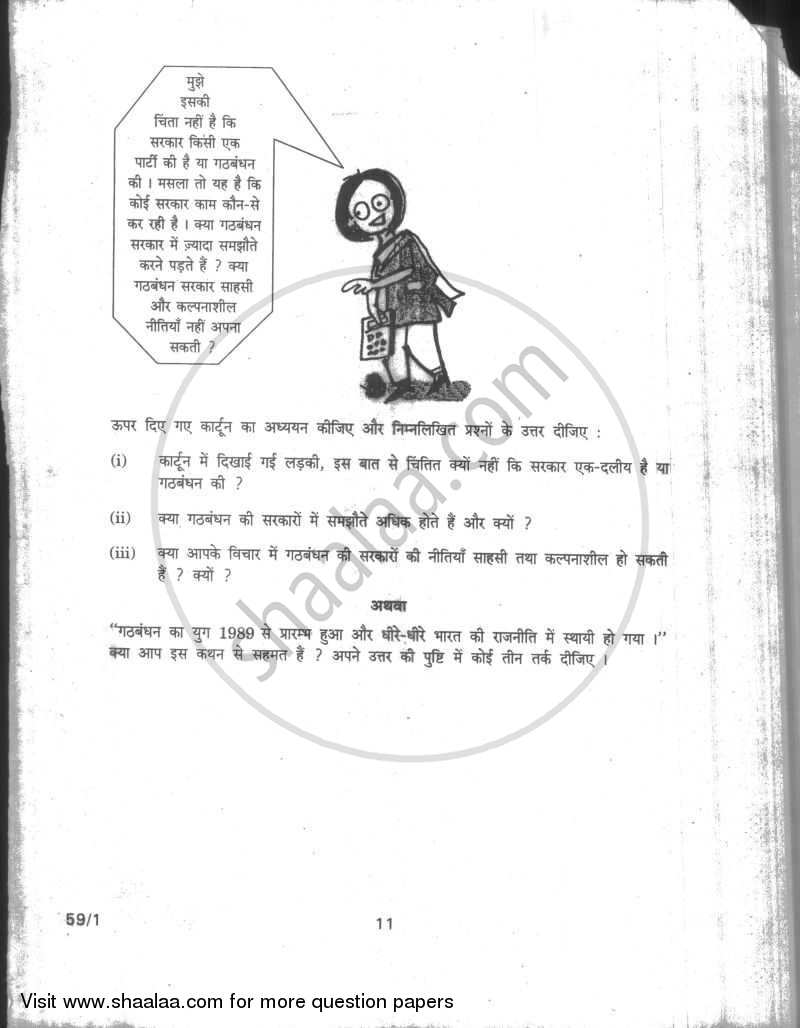 मुझे
इसकी
चिंता नहीं है कि
सरकार किसी एक
पार्टी की है या गठबंधन
की । मसला तो यह है कि
कोई सरकार काम कौन-से
कर रही है । क्या गठबंधन
सरकार में ज़्यादा समझौते
करने पड़ते हैं ? क्या
गठबंधन सरकार साहसी
और कल्पनाशील
नीतियाँ नहीं अपना
सकती ?
ऊपर दिए गए कार्टून का अध्ययन कीजिए और निम्नलिखित प्रश्नों के उत्तर दीजिए :
(i) कार्टून में दिखाई गई लड़की, इस बात से चिंतित क्यों नहीं कि सरकार एक-दलीय है या
गठबंधन की ?
(ii) क्या गठबंधन की सरकारों में समझौते अधिक होते हैं और क्यों ?
(iii) क्या आपके विचार में गठबंधन की सरकारों की नीतियाँ साहसी तथा कल्पनाशील हो सकती
हैं ? क्यों ?
अथवा
“गठबंधन का युग 1989 से प्रारम्भ हुआ और धीरे-धीरे भारत की राजनीति में स्थायी हो गया ।”
क्या आप इस कथन से सहमत हैं ? अपने उत्तर की पुष्टि में कोई तीन तर्क दीजिए ।
shaalaa.com
59/1
11
Visit www.shaalaa.com for more question papers